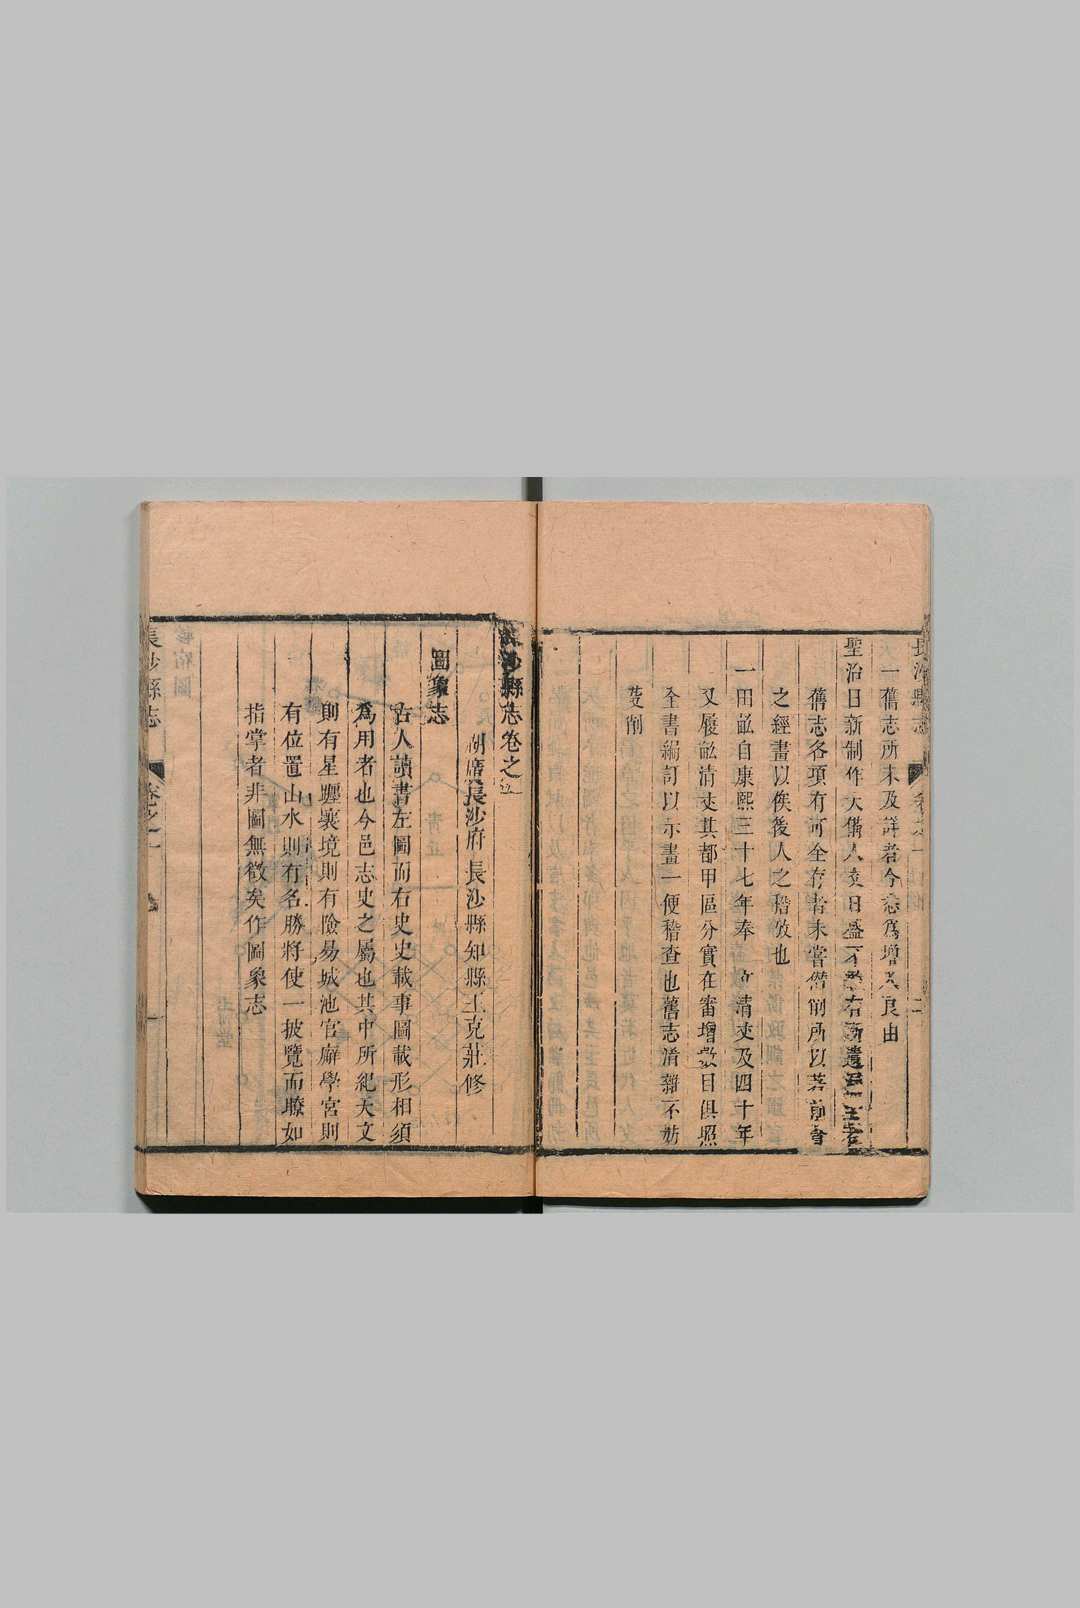 長沙縣志
卷之一
二
一舊志所未及詳者今悉爲增入良由
聖治日新制作大備人文日盛不
舊志各項有可全存者未嘗僭削所以著前會
之經畫以俟後人之稽攷也
一田畝自康熙三十七年奉文清丈及四十年
又履畝清丈其都甲區分實在畨增數目俱照
全書編訂以示畫一便稽查也舊志淆雜不妨
芟削
長沙縣志卷之一
湖廣長沙府長沙縣知縣王克莊修
圖象志
古人讀書左圖而右史史載事圖載形相須
爲用者也今邑志史之屬也其中所紀天文
則有星壥壤境則有險易城池官廨學宮則
有位置山水則有名勝將使一披覽而瞭如
指掌者非圖無徵矣作圖象志
長沙縣志
卷之一
一